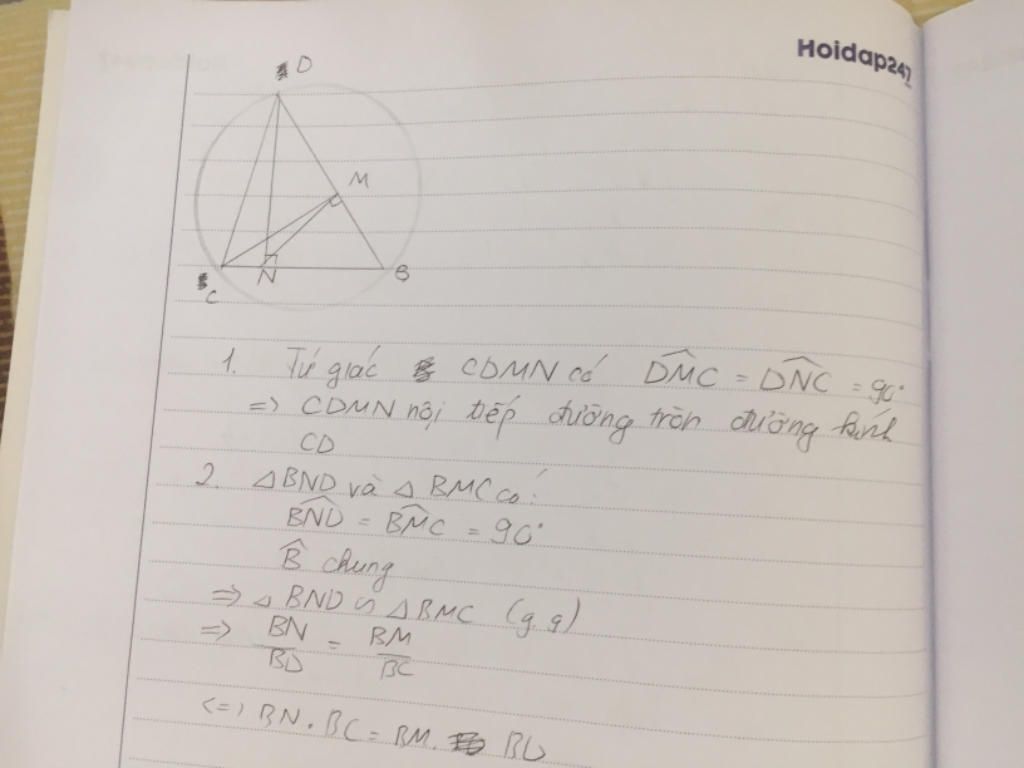 Hoidap247
D
M
N
B
C
1. Tứ giác CDMN có $\widehat{DMC} = \widehat{DNC} = 90°$
=> CDMN nội tiếp đường tròn đường kính
CD
2. △BND và △BMC có:
$\widehat{BND} = \widehat{BMC} = 90°$
$\widehat{B}$ chung
=> △BND ∽ △BMC (g.g)
=> $\frac{BN}{BD} = \frac{BM}{BC}$
<=> BN.BC = BM. BD